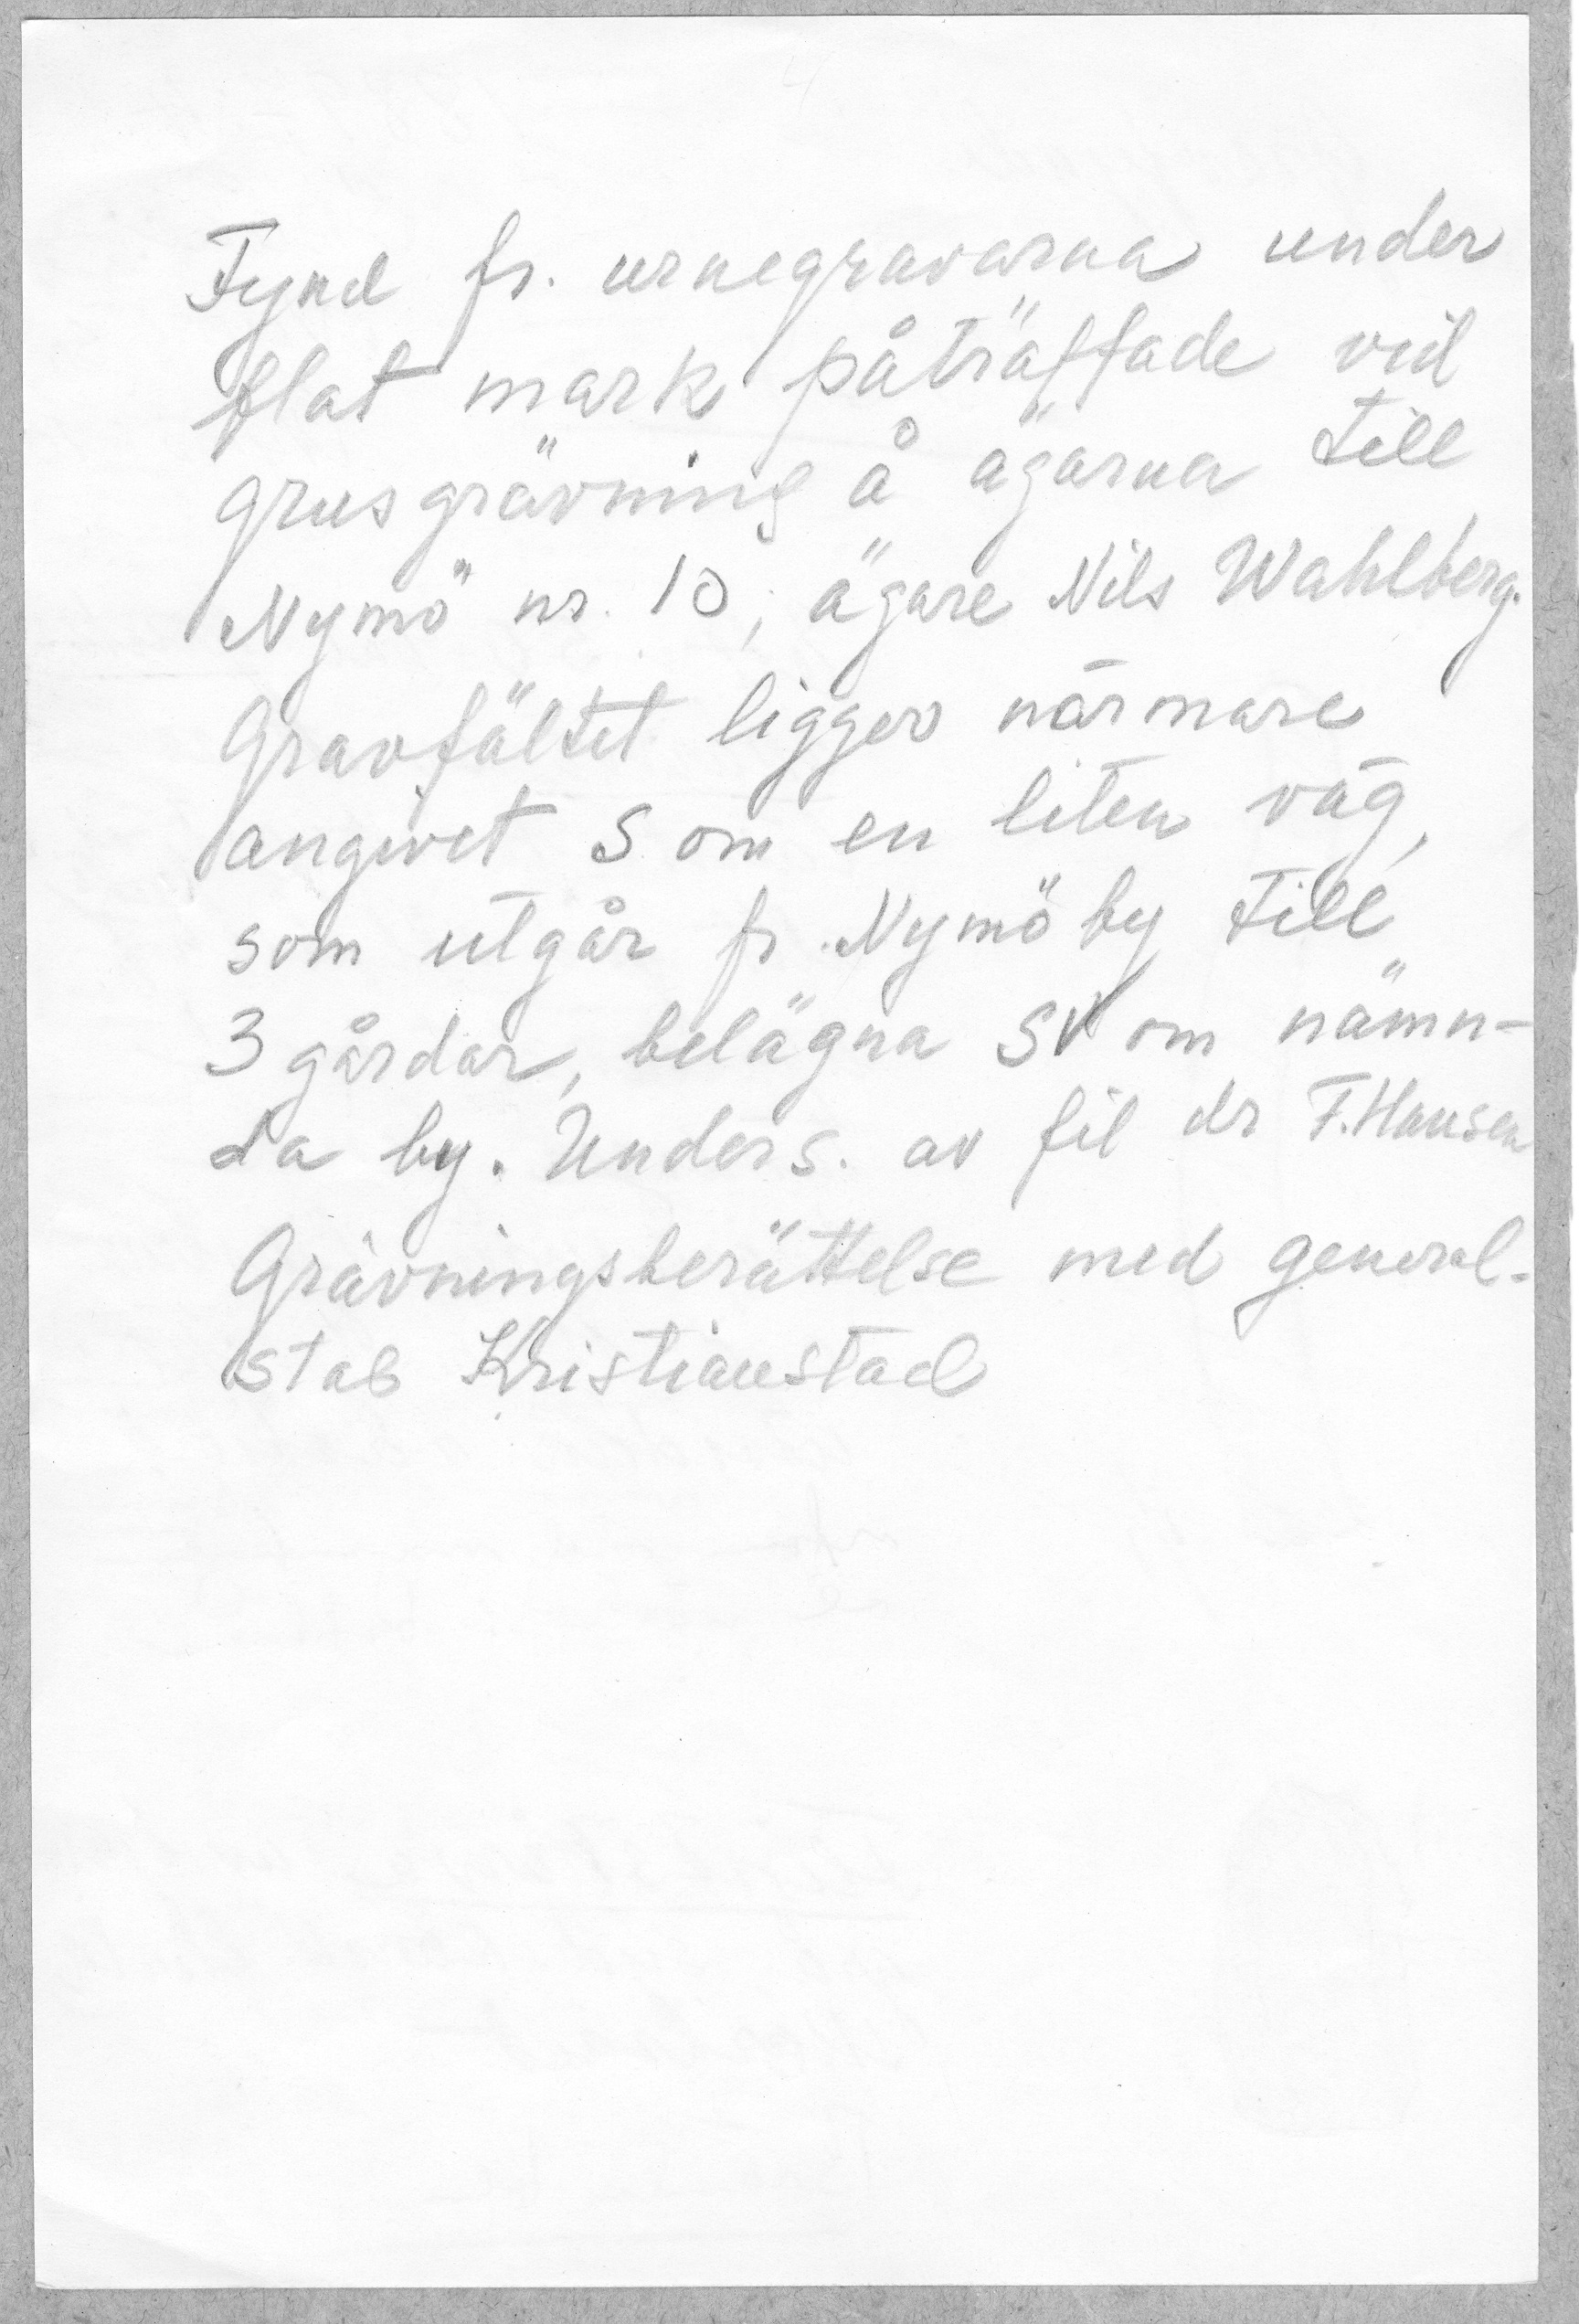 Fynd fr. urnegravarna under
flat mark påträffade vid
grusgrävning å ägarna till
Nymö nr. 10, ägare Nils Wahlberg.
Gravfältet ligger närmare
angivet S om en liten väg,
som utgår fr. Nymö by till
3 gårdar, belägna SV om nämn-
da by. Unders. av fil dr F. Hansen
Grävningsberättelse med general-
stab Kristianstad